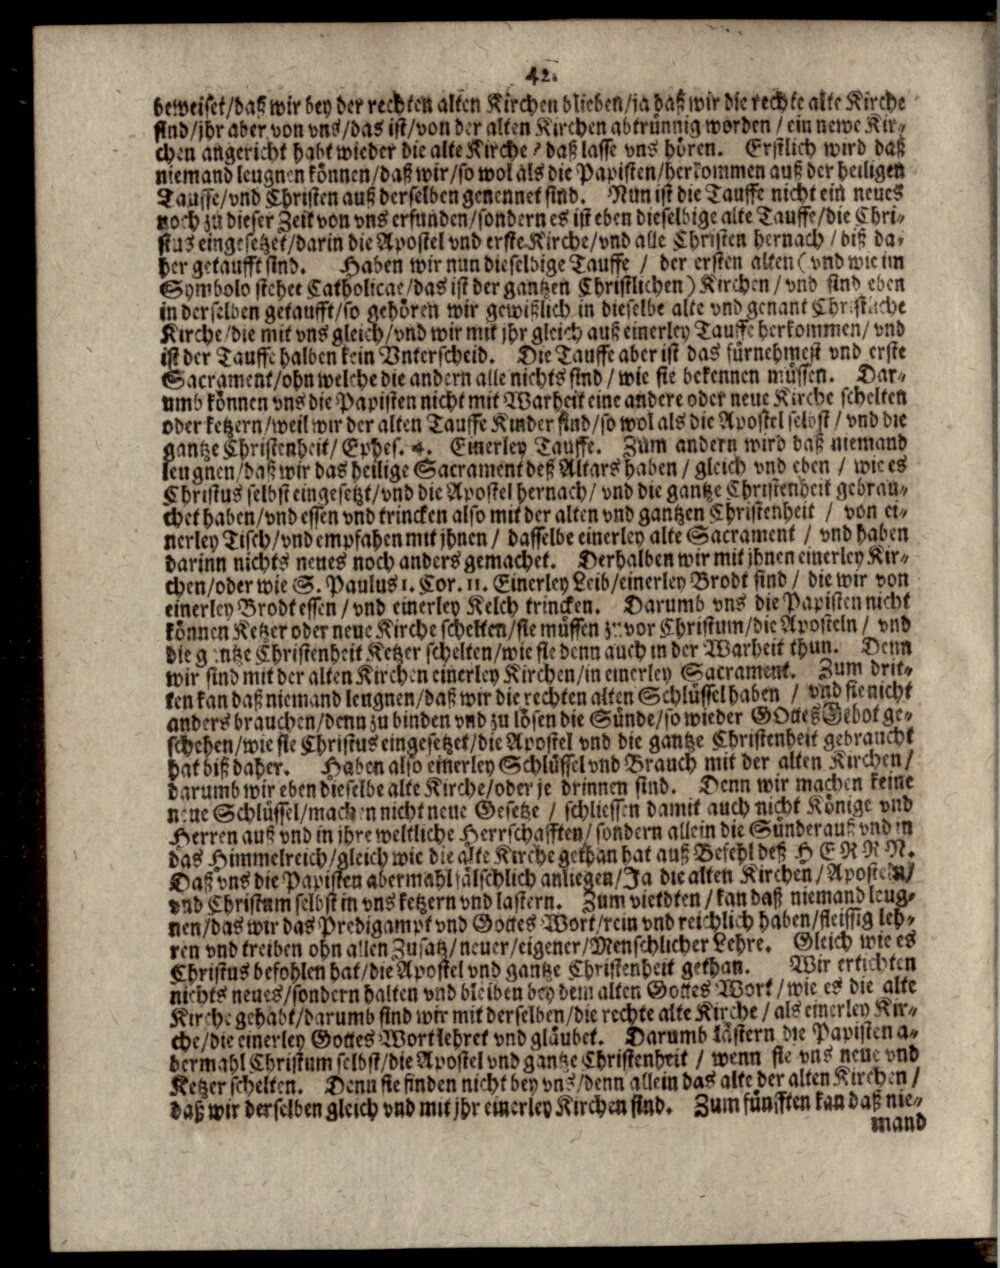 42.
beweiset/daß wir bey der rechten alten Kirchen blieben/ja daß wir die rechte alte Kirche
sind/jhr aber von vns/das ist/von der alten Kirchen abtrünnig worden / ein newe Kir-
chen angericht habt wieder die alte Kirche? daß lasse vns hören. Erstlich wird daß
niemand leugnen können/daß wir/so wol als die Papisten/herkommen auß der heiligen
Tauffe/vnd Christen auß derselben genennet sind. Nun ist die Tauffe nicht ein neues
noch zu dieser Zeit von vns erfunden/sondern es ist eben dieselbige alte Tauffe/die Chri-
stus eingesetzet/darin die Apostel vnd erste Kirche/vnd alle Christen hernach / biß da-
her getaufft sind. Haben wir nun dieselbige Tauffe / der ersten alten (vnd wie im
Symbolo stehet Catholicae/das ist der gantzen Christlichen) Kirchen/ vnd sind eben
in derselben getaufft/so gehören wir gewißlich in dieselbe alte vnd genant Christliche
Kirche/die mit vns gleich/vnd wir mit jhr gleich auß einerley Tauffe herkommen/ vnd
ist der Tauffe halben kein Vnterscheid. Die Tauffe aber ist das fürnehmest vnd erste
Sacrament/ohn welche die andern alle nichts sind / wie sie bekennen müssen. Dar-
umb können vns die Papisten nicht mit Warheit eine andere oder neue Kirche schelten
oder ketzern/weil wir der alten Tauffe Kinder sind/so wol als die Apostel selbst / vnd die
gantze Christenheit/ Ephes. 4. Einerley Tauffe. Zum andern wird daß niemand
leugnen/daß wir das heilige Sacrament deß Altars haben / gleich vnd eben / wie es
Christus selbst eingesetzt/vnd die Apostel hernach/ vnd die gantze Christenheit gebrau-
chet haben/vnd essen vnd trincken also mit der alten vnd gantzen Christenheit / von ei-
nerley Tisch/vnd empfahen mit jhnen / dasselbe einerley alte Sacrament / vnd haben
darinn nichts neues noch anders gemachet. Derhalben wir mit jhnen einerley Kir-
chen/oder wie S. Paulus 1. Cor. 11. Einerley Leib/einerley Brodt sind / die wir von
einerley Brodt essen / vnd einerley Kelch trincken. Darumb vns die Papisten nicht
können Ketzer oder neue Kirche schelten/sie müssen zuvor Christum/die Aposteln / vnd
die gantze Christenheit Ketzer schelten/wie sie denn auch in der Warheit thun. Denn
wir sind mit der alten Kirchen einerley Kirchen/in einerley Sacrament. Zum drit-
ten kan daß niemand leugnen/daß wir die rechten alten Schlüssel haben / vnd sie nicht
anders brauchen/denn zu binden vnd zu lösen die Sünde/so wieder GOttes Gebot ge-
schehen/wie sie Christus eingesetzet/die Apostel vnd die gantze Christenheit gebraucht
hat biß daher. Haben also einerley Schlüssel vnd Brauch mit der alten Kirchen/
darumb wir eben dieselbe alte Kirche/oder je drinnen sind. Denn wir machen keine
neue Schlüssel/machen nicht neue Gesetze / schliessen damit auch nicht Könige vnd
Herren auß vnd in jhre weltliche Herrschafften/ sondern allein die Sünder auß vnd in
das Himmelreich/gleich wie die alte Kirche gethan hat auß Befehl deß HERRN.
Daß vns die Papisten abermahl fälschlich anliegen/Ja die alten Kirchen/Aposteln/
vnd Christum selbst in vns ketzern vnd lastern. Zum vierdten / kan daß niemand leug-
nen/das wir das Predigampt vnd Gottes Wort/rein vnd reichlich haben/fleissig leh-
ren vnd treiben ohn allen Zusatz/ neuer/eigener/Menschlicher Lehre. Gleich wie es
Christus befohlen hat/die Apostel vnd gantze Christenheit gethan. Wir ertichten
nichts neues/sondern halten vnd bleiben bey dem alten Gottes Wort/wie es die alte
Kirche gehabt/darumb sind wir mit derselben/die rechte alte Kirche / als einerley Kir-
che/die einerley Gottes Wort lehret vnd gläubet. Darumb lästern die Papisten a-
bermahl Christum selbst/die Apostel vnd gantze Christenheit / wenn sie vns neue vnd
Ketzer schelten. Denn sie finden nicht bey vns/denn allein das alte der alten Kirchen /
daß wir derselben gleich vnd mit jhr einerley Kirchen sind. Zum fünfften kan daß nie-
mand